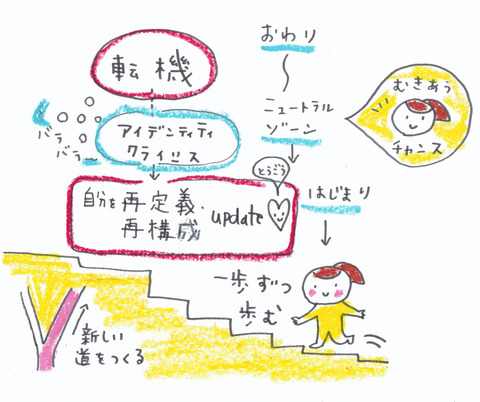 転機
おわり
むきあう
チャンス
ニュートラル
ゾーン
アイデンティティ
クライシス
バラ
バラ
とうごう
はじまり
自分を再定義・
再構成
update
一歩ずつ
歩む
新しい
道をつくる